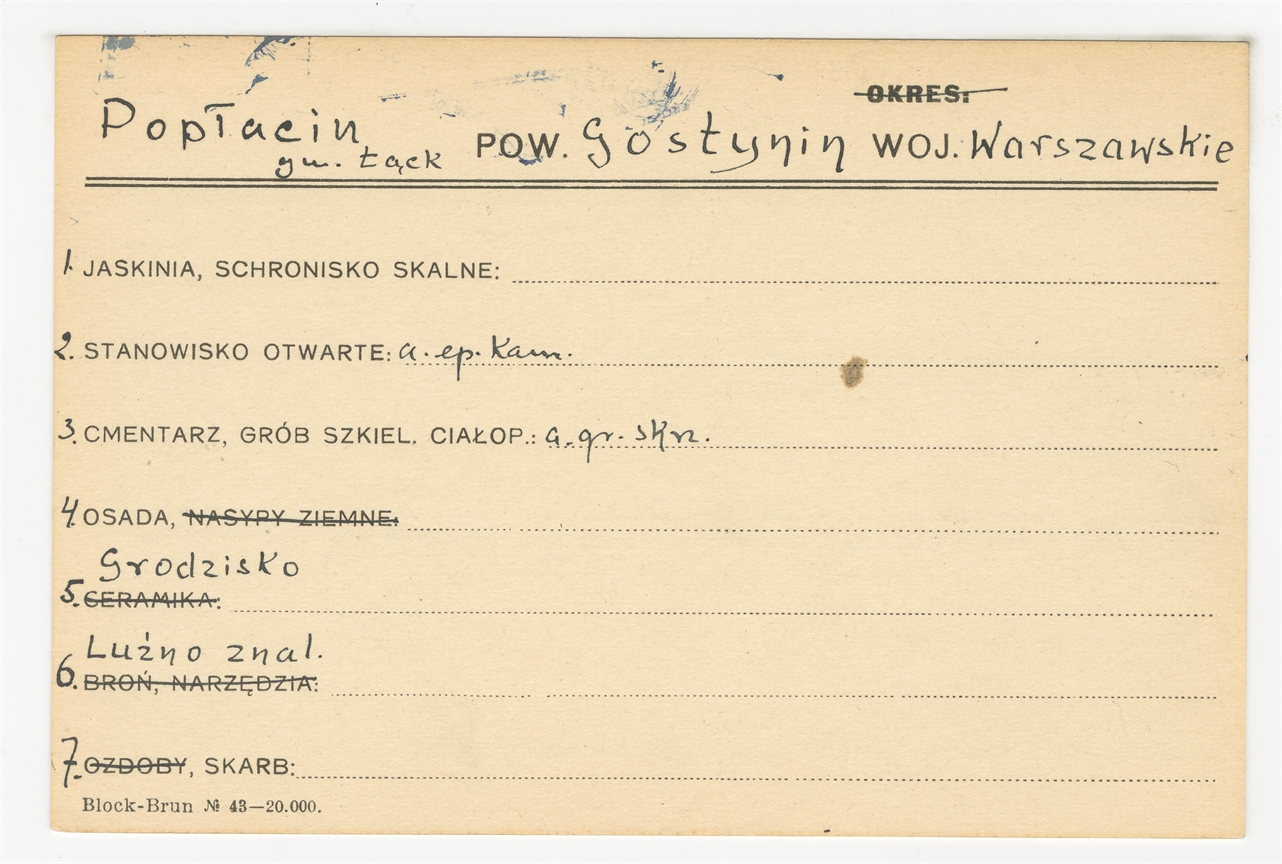 OKRES:
Popłacin POW. Gostynin WOJ. Warszawskie
gm. Łąck
1. JASKINIA, SCHRONISKO SKALNE:
2. STANOWISKO OTWARTE: a. ep. Kam.
3. CMENTARZ, GRÓB SZKIEL. CIAŁOP.: a. gr. skrz.
4. OSADA, NASYPY ZIEMNE:
Grodzisko
5. CERAMIKA:
Luźno znal.
6. BROŃ, NARZĘDZIA:
7. OZDOBY, SKARB:
Block-Brun № 43—20.000.